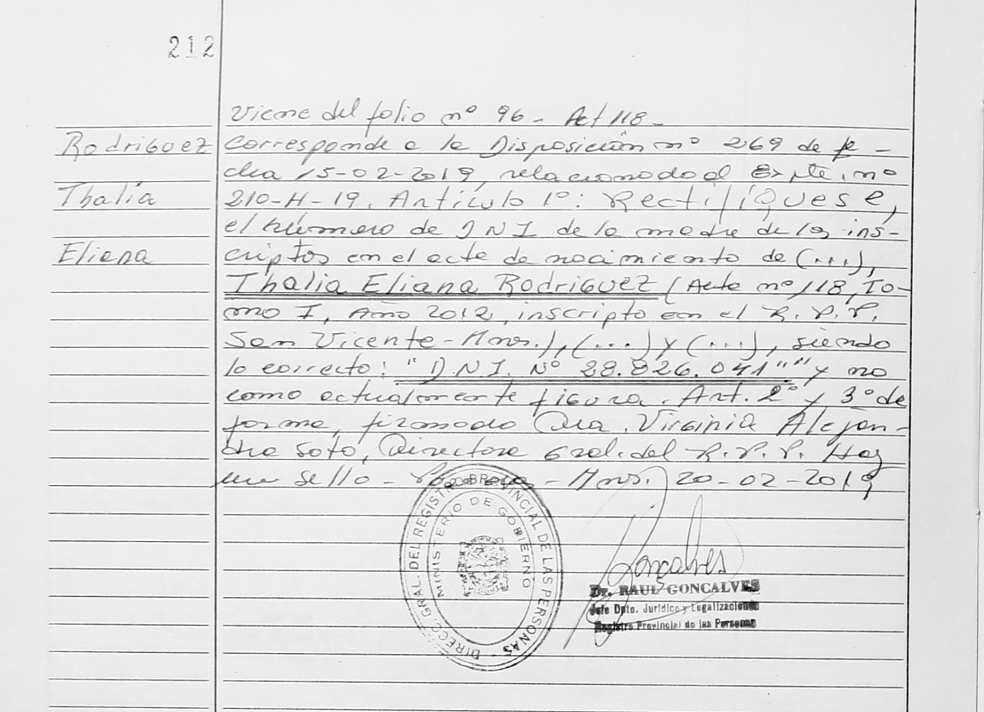 212
Rodriguez
Thalía
Eliana
Viene del folio nº 96 - Act 118 -
Corresponde a la Disposición nº 269 de fe-
cha 15-02-2019, relacionado al Expte. nº
210-H-19. Artículo 1º: Rectifíquese,
el número de DNI de la madre de los ins-
criptos en el acta de nacimiento de (...),
Thalia Eliana Rodriguez (Acta nº 118, To-
mo I, Año 2012, inscripto en el R.P.P.
San Vicente - Mnes.), (...) y (...), siendo
lo correcto: "DNI. Nº 38.826.041"" y no
como actualmente figura. Art. 2º y 3º de
forma, firmado Dra. Virginia Alejan-
dra Soto, Directora Gral. del R.P.P. Hay
un sello - - Mnes. 20-02-2019
DIRECC. GRAL. DEL REGISTRO PROVINCIAL DE LAS PERSONAS -
MINISTERIO DE GOBIERNO
Goncalves
Dr. RAUL GONCALVES
Jefe Dpto. Jurídico y Legalizaciones
Registro Provincial de las Personas